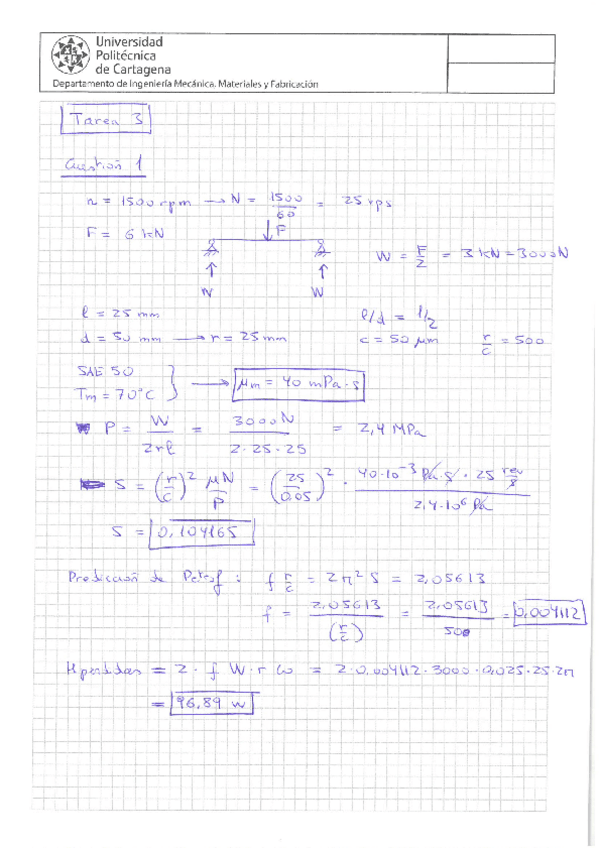 Universidad
Politécnica
de Cartagena
Departamento de Ingeniería Mecánica, Materiales y Fabricación
Tarea 3
Cuestión 1
n = 1500 rpm → N = 1500/60 = 25 rps
F = 6 kN
F
W = F/2 = 3 kN = 3000N
W W
l = 25 mm l/d = 1/2
d = 50 mm → r = 25 mm c = 50 μm r/c = 500
SAE 50
Tm = 70°C } → μm = 40 mPa·s
P = W/2rl = 3000N/2·25·25 = 2,4 MPa
S = (r/c)² μN/P = (25/0.05)² · 40·10⁻³ Pa·s · 25 rev/s / 2,4·10⁶ Pa
S = 0,104165
Predicción de Petrof : f r/c = 2π² S = 2,05613
f = 2,05613/(r/c) = 2,05613/500 = 0,004112
H perdidas = 2 · f W · r ω = 2·0,004112·3000·0,025·25·2π
= 96,89 w